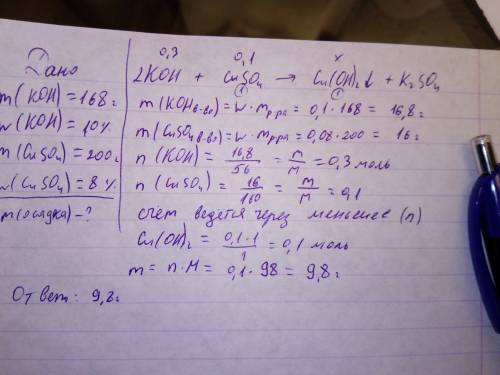 Дано
m(KOH)=168г
w(KOH)=10%
m(CuSO4)=200г
w(CuSO4)=8%
m(осадка)-?
0,3 0,1 x
2KOH + CuSO4 → Cu(OH)2↓ + K2SO4
1 1
m(KOHв-во)=w·mр-ра=0,1·168=16,8г
m(CuSO4в-во)=w·mр-ра=0,08·200=16г
n(KOH)=16,8/56=m/M=0,3 моль
n(CuSO4)=16/160=m/M=0,1
счет ведется через меньшее (n)
Cu(OH)2=0,1·1/1=0,1 моль
m=n·M=0,1·98=9,8г
Ответ: 9,8г